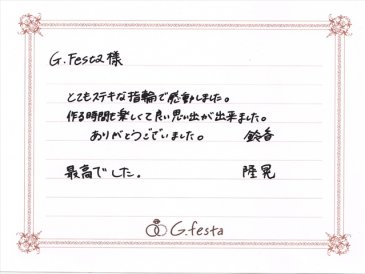 G.Festa様
とてもステキな指輪で感動しました。
作る時間も楽しくて良い思い出が出来ました。
ありがとうございました。 鈴香
最高でした。 隆晃
G.festa